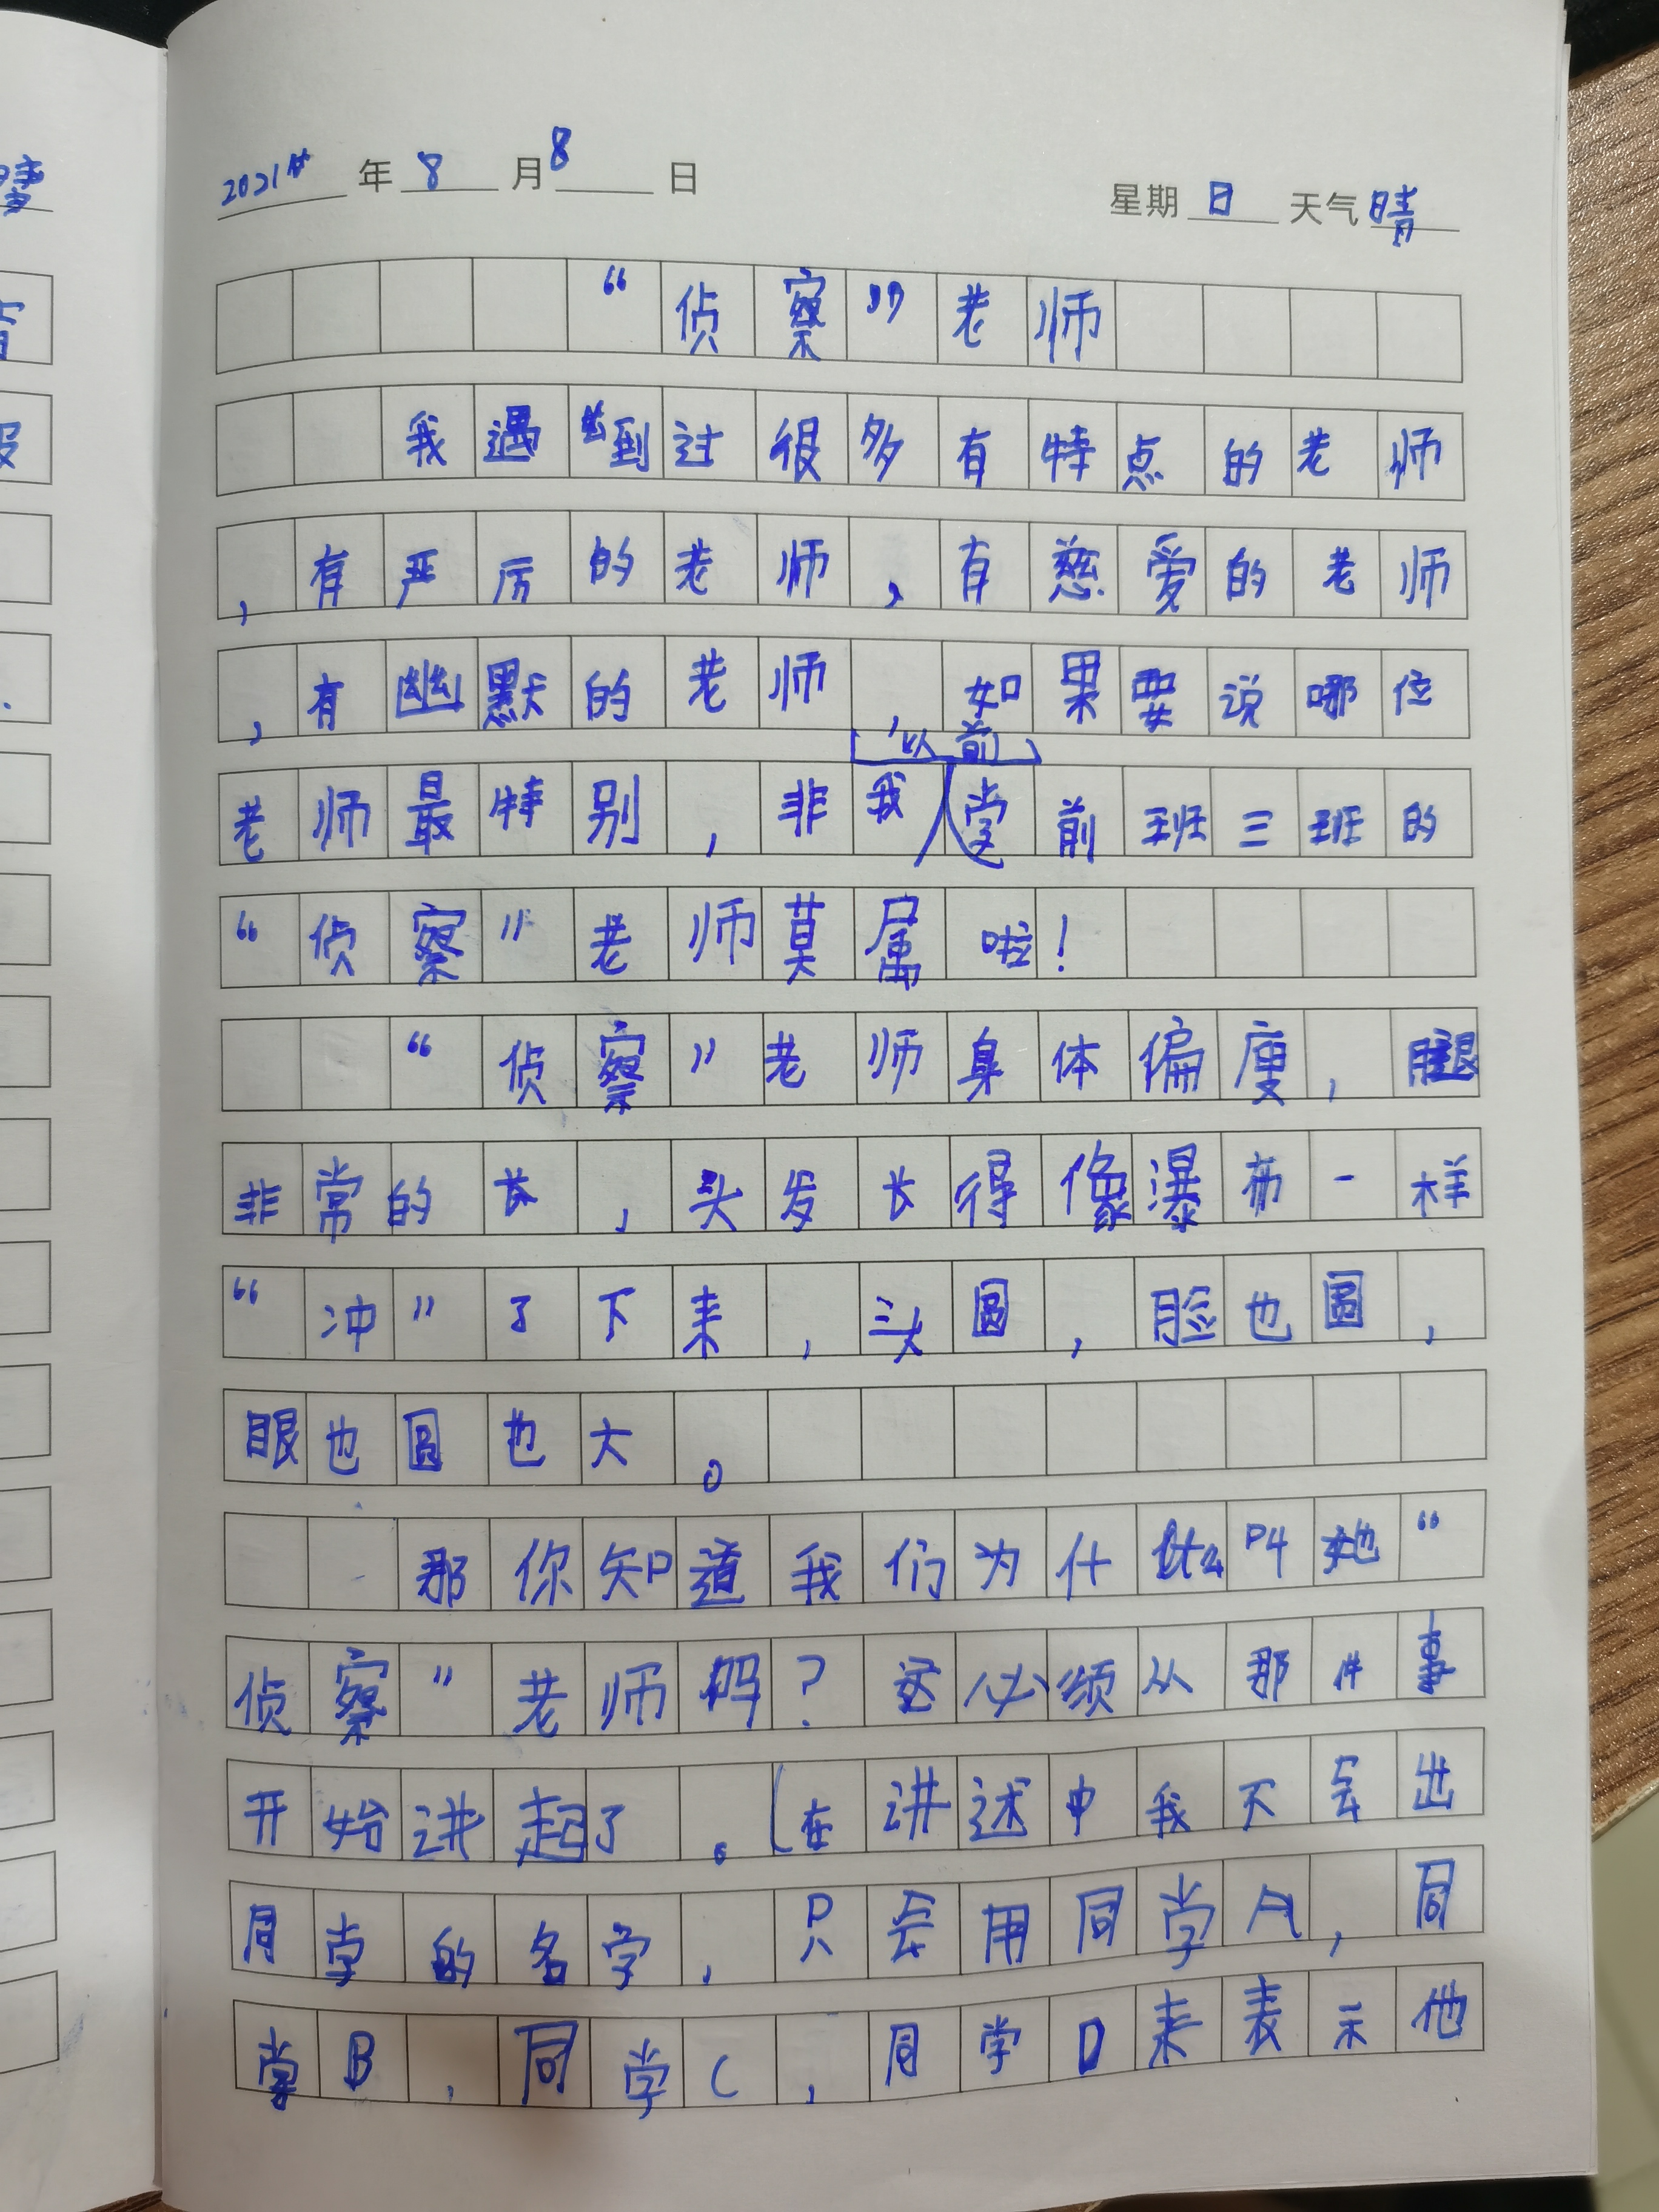 2021年8月8日 星期日 天气晴
“侦察”老师
我遇到过很多有特点的老师
，有严厉的老师，有慈爱的老师
，有幽默的老师，如果要说哪位
以前
老师最特别，非我前班三班的
“侦察”老师莫属啦！
“侦察”老师身体偏瘦，腿
非常的长，头发长得像瀑布一样
“冲”了下来，头圆，脸也圆，
眼也圆也大。
那你知道我们为什么叫她“
侦察”老师吗？这必须从那件事
开始讲起了。（在讲述中我不会出
同学的名字，只会用同学A，同
学B，同学C，同学D来表示他